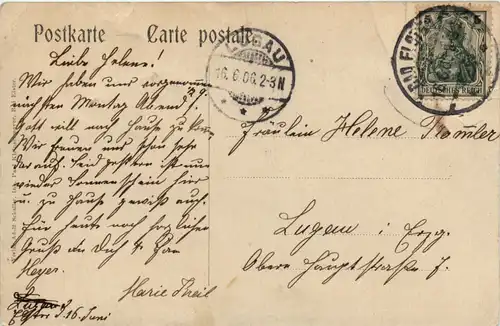 Postkarte Carte postale
Liebe Helene!
Wir haben uns vorgenommen
nächsten Montag Abend
Gott will nach Hause zu
Wir freuen uns schon sehr
darauf. Seid gestern ist nun
wieder Sonnenschein hier
u. zu Hause gewiß auch.
Für heute noch herzlichen
Gruß an Dich u. Frau
Meyer.
Marie Theil
Elster d. 16. Juni
LUGAU
16.6.06.2-3N
BAD ELSTER
5
DEUTSCHES REICH
Fräulein Helene
Lugau i/ Erzg.
Obere Hauptstraße 7.